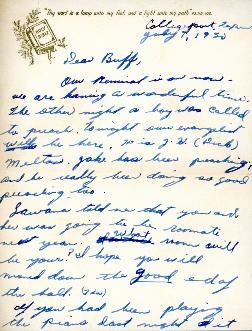 "Thy word is a lamp unto my feet, and a light unto my path" PS 119:105
HOLY BIBLE
July 7, 1950
Dear Buff,
Our Revival is on now -
we are having a wonderful time.
The other night a boy was called
to preach. Tonight our evangelist
will be here. He is J. W. (Jack)
Melton. Jake has been preaching;
and he really been doing as good
preaching too.
Lawana told me that you and
her was going to be roomate
next year. What room will
be your? I hope you will
the good end of
the hall.
If you had been playing
the piano last night it